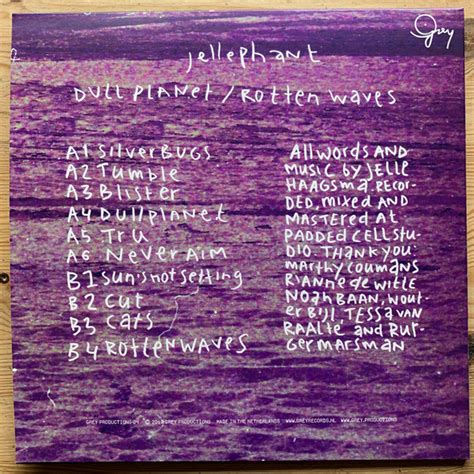 Grey
jellephant
DULL PLANET / ROTTEN WAVES
A1 SilverBUGS
A2 Tumble
A3 Blister
A4 Dullplanet
A5 Tru
A6 NeverAim
B1 Sun's not Setting
B2 Cut
B3 Cats
B4 ROTTENWAVES
All words AND
music by Jelle
HAAGSMA. Recor-
DED, mixed AND
mastered at
PADDED CELL STU-
DIO. THANK YOU:
marthy coumans
Rianne de wille
NOAH BAAN, wout-
er Bijl, TESSA VAN
RAALTE and RUT-
GER MARSMAN
GREY PRODUCTIONS 04 © GREY PRODUCTIONS MADE IN THE NETHERLANDS WWW.GREYRECORDS.NL WWW.GREY.PRODUCTIONS